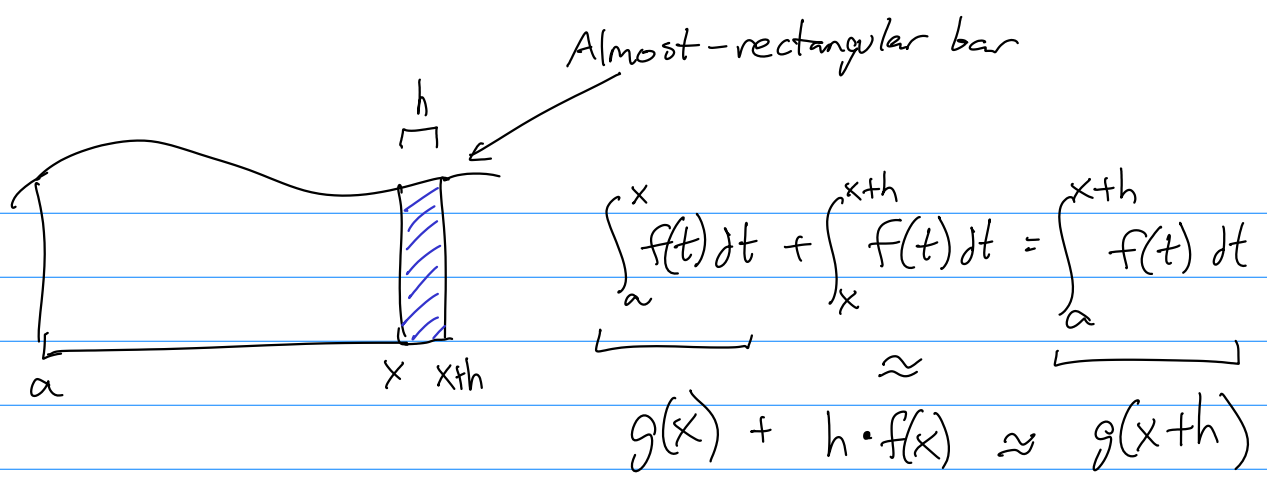 Almost-rectangular bar
h
∫_a^x f(t) dt + ∫_x^{x+h} f(t) dt = ∫_a^{x+h} f(t) dt
a x x+h
≈
g(x) + h·f(x) ≈ g(x+h)